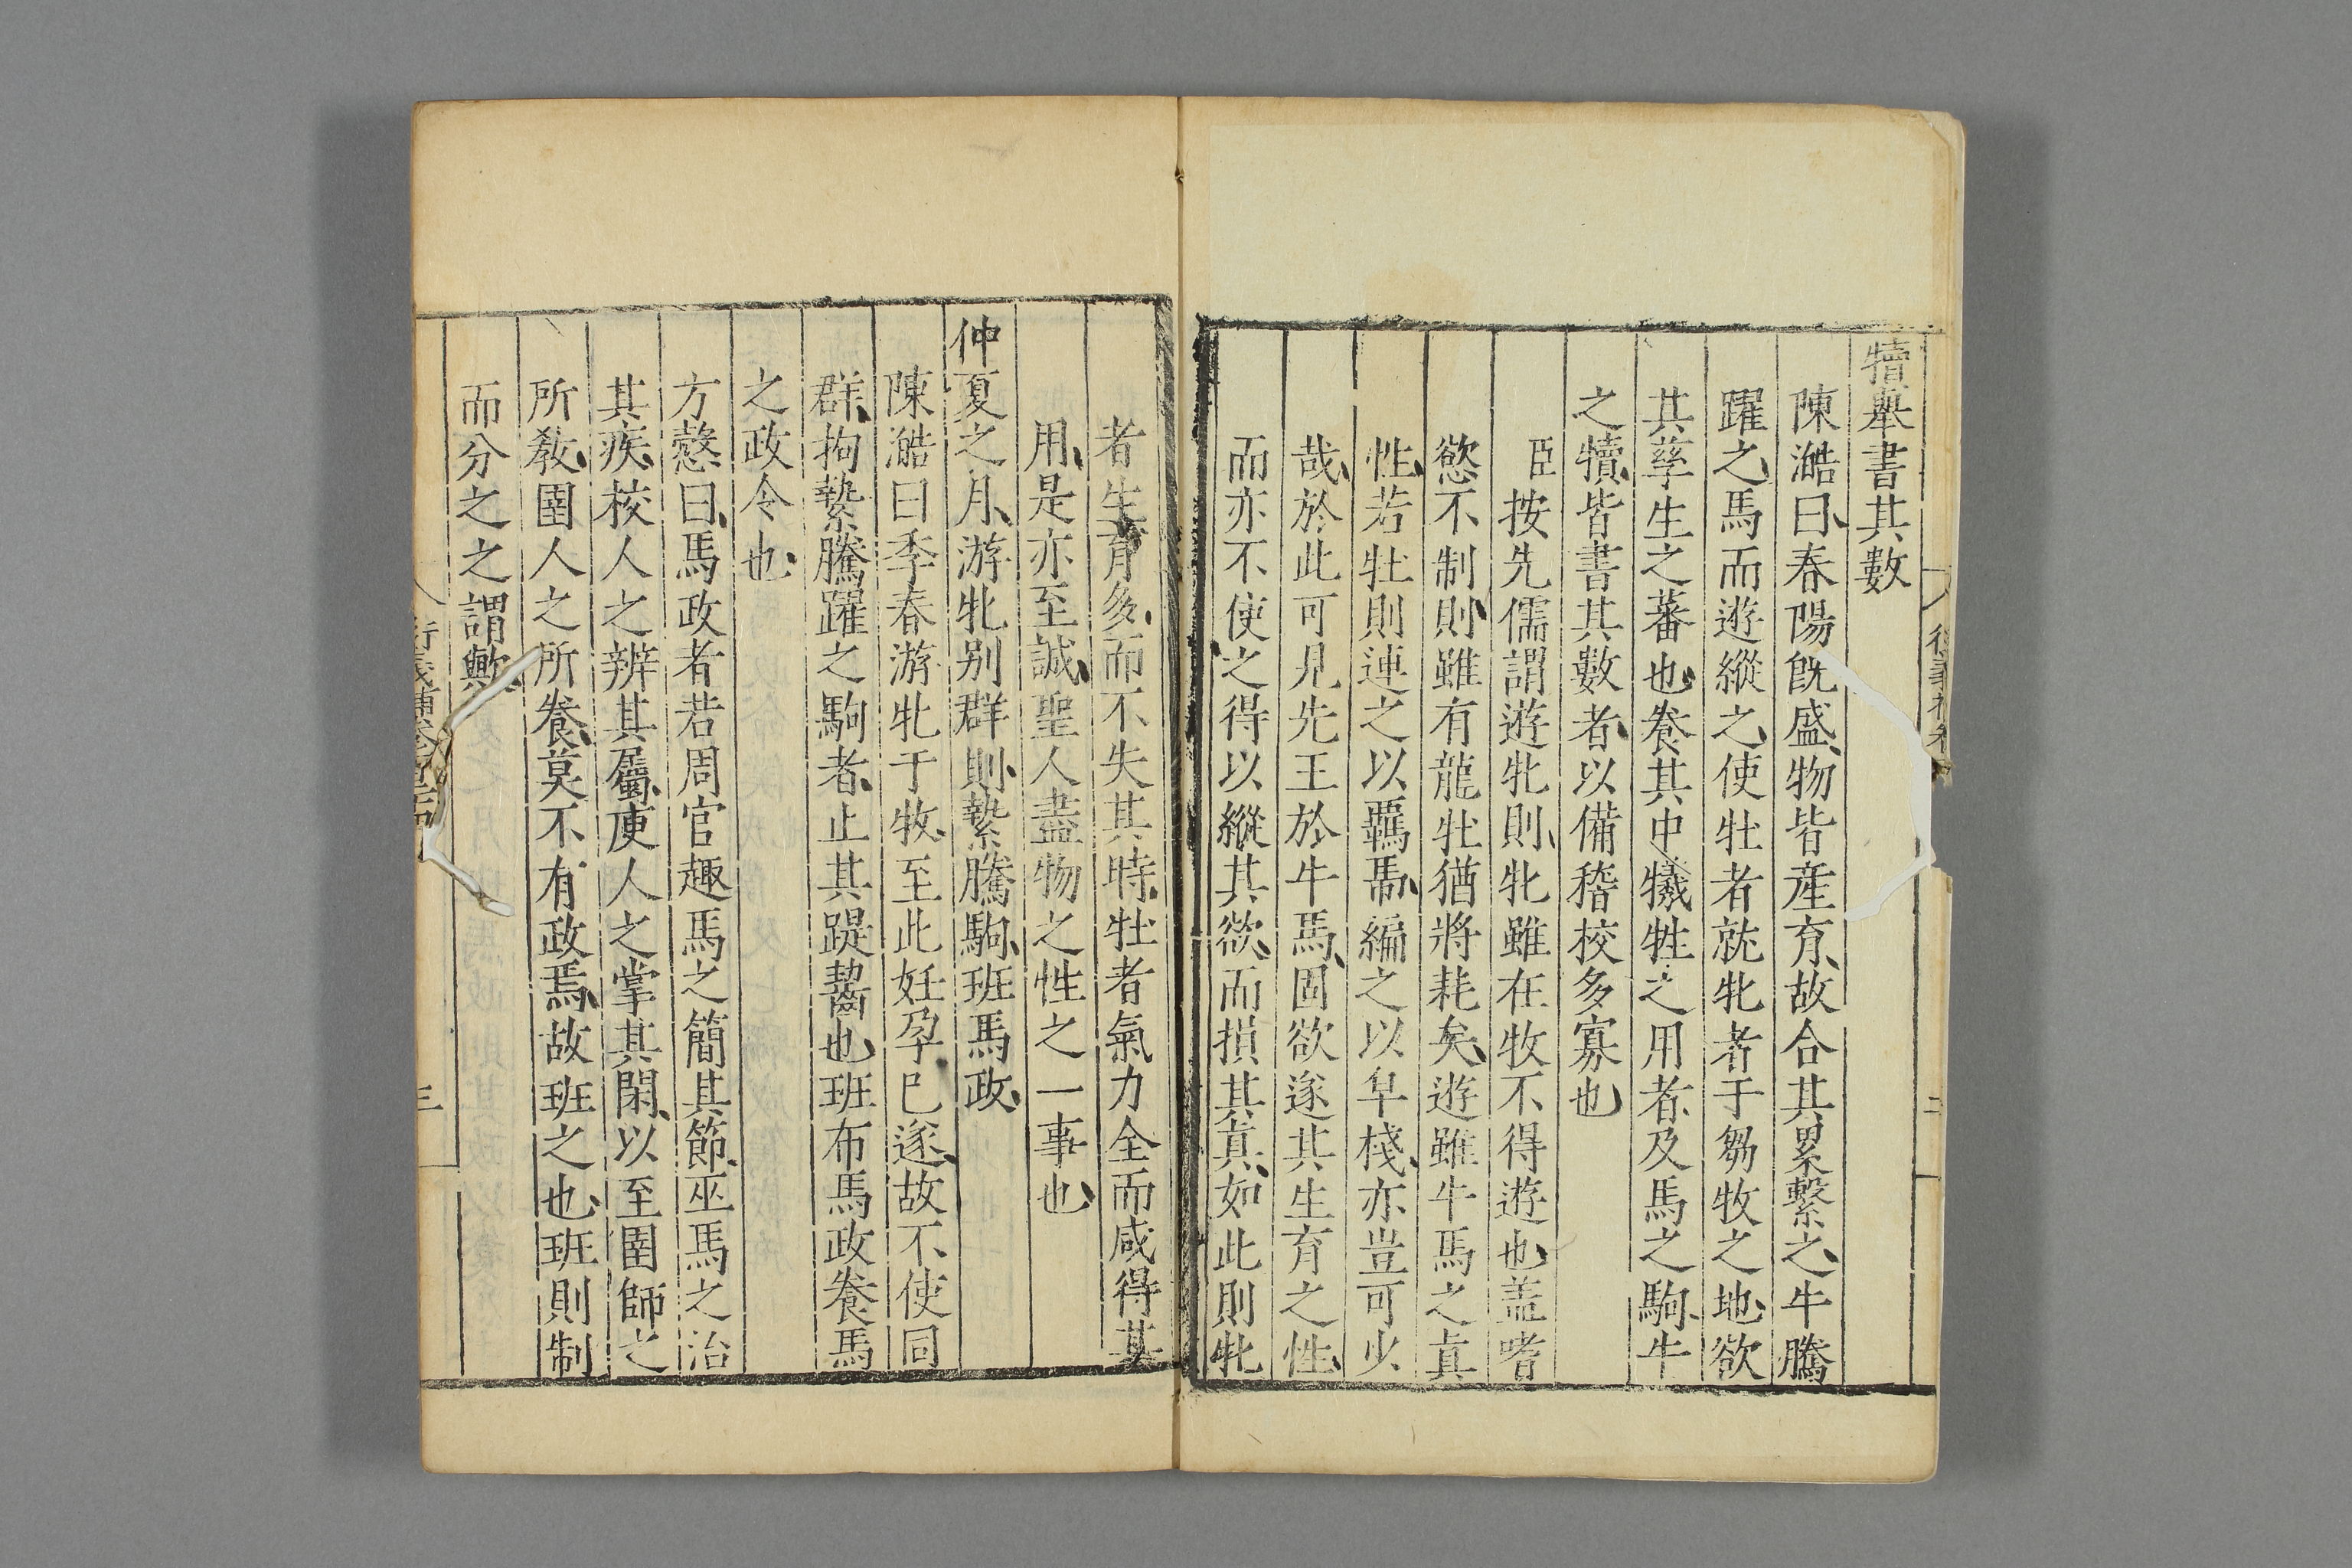 犢舉書其數
陳澔曰、春陽旣盛、物皆産育、故合其累繫之、牛騰
躍之、馬而遊縱之、使牡者就牝者于芻牧之地、欲
其孳生之蕃也、養其中犧牲之用者、及馬之駒、牛
之犢、皆書其數者、以備稽校多寡也
臣按先儒謂遊牝則、牝雖在牧不得遊也、盖嗜
慾不制則、雖有龍牡猶將耗矣、遊雖牛馬之真
性、若牡則連之以羈馽、編之以皁棧、亦豈可少
哉、於此可見先王於牛馬、固欲遂其生育之性、
而亦不使之得以縱其欲、而損其真、如此則牝
者生育多、而不失其時、牡者氣力全而咸得其
用、是亦至誠聖人盡物之性之一事也、
仲夏之月、游牝别群、則縶騰駒、班馬政、
陳澔曰季春游牝于牧、至此妊孕已遂、故不使同
群、拘縶騰躍之駒者、止其踶齧也、班布馬政、養馬
之政令也、
方慤曰、馬政者若周官趣馬之簡其節、巫馬之治
其疾、校人之辨其屬、庾人之掌其閑、以至圉師之
所敎、圉人之所養、莫不有政焉、故班之也、班則制
而分之之謂歟、
三